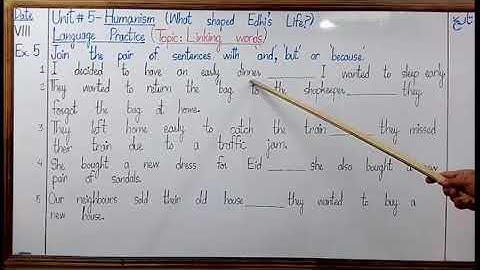 Date
Unit # 5 - Humanism (What shaped Edhi's Life?)
تاریخ
VIII
Language Practice (Topic: Linking words)
Ex. 5
Join the pair of sentences with 'and,' 'but' or 'because.
1 I decided to have an early dinner ______ I wanted to sleep early
2 They wanted to return the bag to the shopkeeper ______ they
forgot the bag at home.
3 They left home early to catch the train ______ they missed
their train due to a traffic jam.
4 She bought a new dress for Eid ______ she also bought a new
pair of sandals.
5 Our neighbours sold their old house ______ they wanted to buy a
new house.